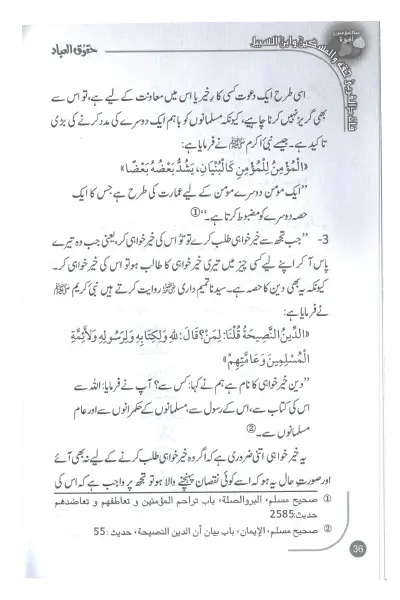 حقوق العباد
اسی طرح ایک دعوت کسی کارِ خیر یا اس میں معاونت کے لیے ہے، تو اس سے
بھی گریز نہیں کرنا چاہیے، کیونکہ مسلمانوں کو باہم ایک دوسرے کی مدد کرنے کی بڑی
تاکید ہے۔ جیسے نبی اکرم ﷺ نے فرمایا ہے:
«الْمُؤْمِنُ لِلْمُؤْمِنِ كَالْبُنْيَانِ، يَشُدُّ بَعْضُهُ بَعْضًا»
’’ایک مؤمن دوسرے مؤمن کے لیے عمارت کی طرح ہے جس کا ایک
حصہ دوسرے کو مضبوط کرتا ہے۔‘‘①
3- ’’جب تجھ سے خیر خواہی طلب کرے تو تُو اس کی خیر خواہی کر، یعنی جب وہ تیرے
پاس آکر اپنے لیے کسی چیز میں تیری خیر خواہی کا طالب ہو تو اس کی خیر خواہی کر۔
کیونکہ یہ بھی دین کا حصہ ہے۔ سیدنا تمیم داری روایت کرتے ہیں نبی کریم ﷺ
نے فرمایا ہے:
«الدِّينُ النَّصِيحَةُ قُلْنَا: لِمَنْ؟ قَالَ: لِلَّهِ وَلِكِتَابِهِ وَلِرَسُولِهِ وَلِأَئِمَّةِ
الْمُسْلِمِينَ وَعَامَّتِهِمْ»
’’دین خیر خواہی کا نام ہے ہم نے کہا: کس سے؟ آپ نے فرمایا: اللہ سے
اس کی کتاب سے، اس کے رسول سے، مسلمانوں کے حکمرانوں سے اور عام
مسلمانوں سے۔②
یہ خیر خواہی اتنی ضروری ہے کہ اگر وہ خیر خواہی طلب کرنے کے لیے نہ بھی آئے
اور صورتِ حال یہ ہو کہ اسے کوئی نقصان پہنچنے والا ہو تو تجھ پر واجب ہے کہ اس کی
① صحیح مسلم، البر والصلة، باب تراحم المؤمنین و تعاطفهم و تعاضدهم
حدیث: 2585
② صحیح مسلم، الإیمان، باب بیان أن الدین النصیحة، حدیث: 55
36